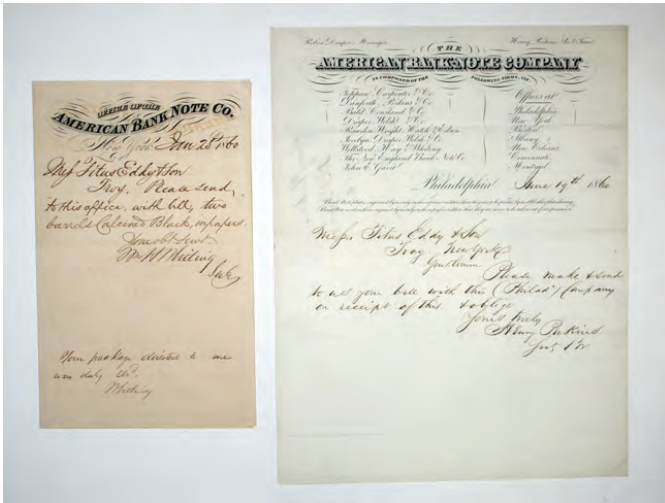 OFFICE OF THE
AMERICAN BANK NOTE CO.
New York, Jan 28 1860
Mess Titus Eddy & Son
Troy. Please send
to this office, with bill, two
barrels Calcined Black, in papers.
Your obt Servt
Wm H Whiting
Your package directed to me
was duly
Whiting
Robert Draper Manager
THE
AMERICAN BANK-NOTE COMPANY
IS COMPOSED OF THE
FOLLOWING FIRMS, VIZ
Toppan, Carpenter & Co.
Danforth, Perkins & Co.
Bald, Cousland & Co.
Draper, Welsh & Co.
Rawdon, Wright, Hatch & Edson
Jocelyn, Draper, Welsh & Co.
Wellstood, Hay & Whiting
The New England Bank Note Co.
John E. Gavit
Offices at
Philadelphia
New York
Boston
Albany
New Orleans
Cincinnati
Montreal
Philadelphia June 19th 1860
Messrs Titus Eddy & Son
Troy New York
Gentlemen
Please make & send
to us your bill with this (Philad.) Company
on receipt of this & oblige
Yours truly
Henry Perkins